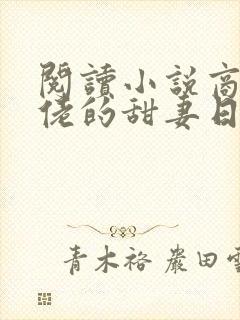 閱讀小說商
佬的甜妻日
青木裕 嚴田雪